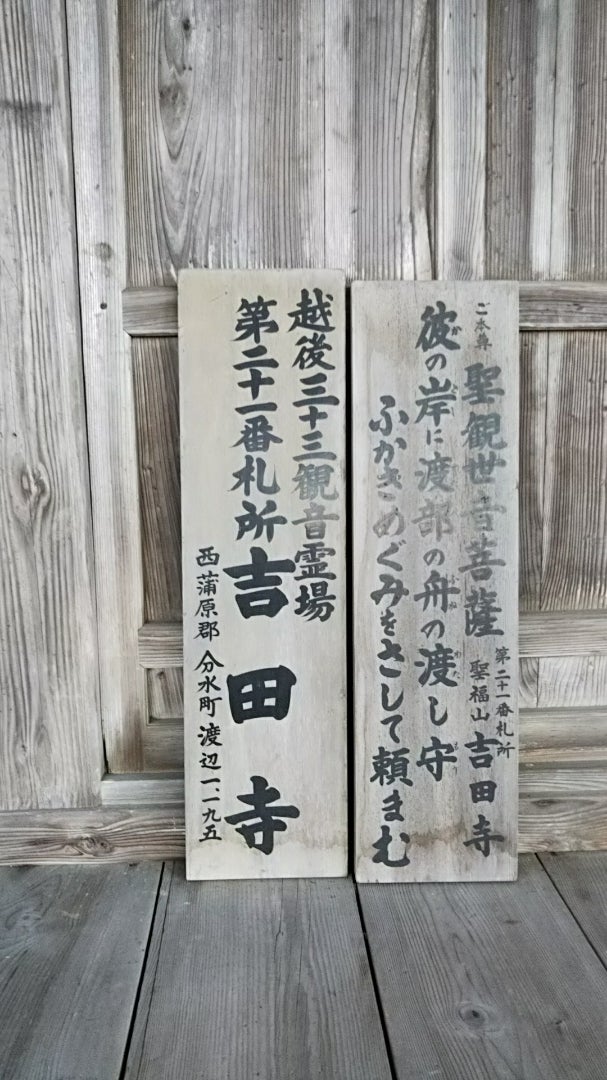 ご本尊 聖観世音菩薩
第二十一番札所
聖福山 吉田寺
彼の岸に渡部の舟の渡し守
ふかきめぐみをさして頼まむ
越後三十三観音霊場
第二十一番札所 吉田寺
西蒲原郡 分水町 渡辺一、一九五